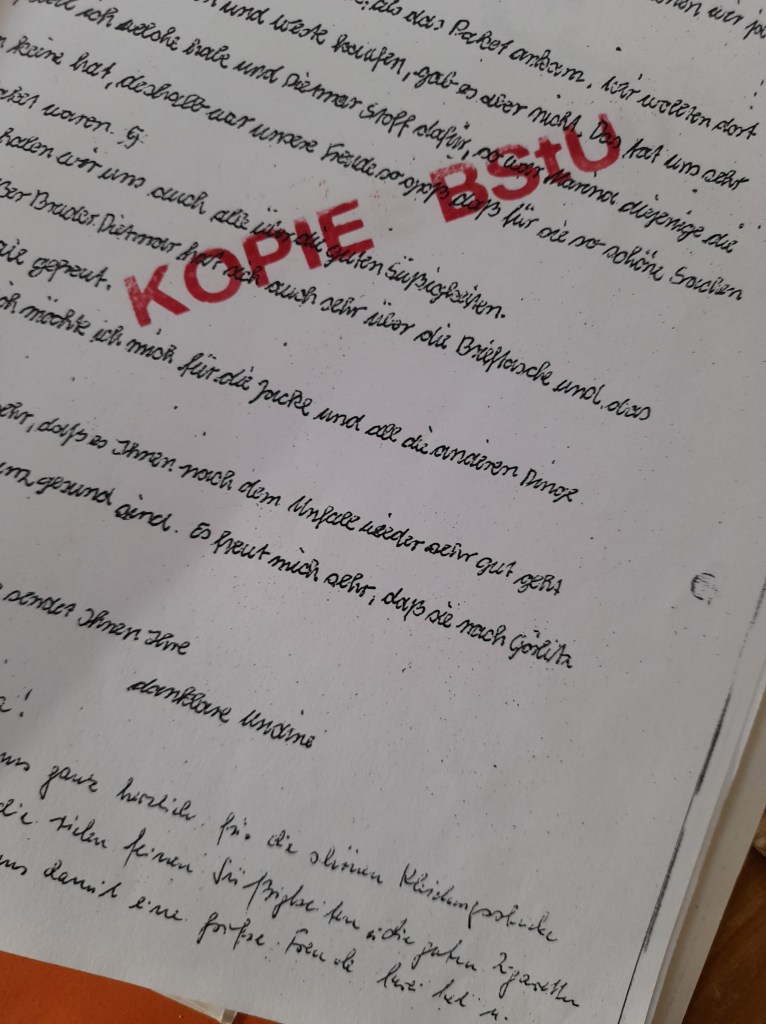 als das Paket ankam. Wir wollten dort
und Weste kaufen, gab es aber nicht. Das hat uns sehr
ich welche habe und Dietmar Stoff dafür, so war Marina diejenige die
keine hat, deshalb war unsere Freude so groß daß für sie so schöne Sachen
waren.
wir uns auch alle über die guten Süßigkeiten.
Bruder Dietmar hat sich auch sehr über die Brieftasche und das
gefreut.
möchte ich mich für die Jacke und all die anderen Dinge
daß es Ihnen nach dem Unfall wieder sehr gut geht
gesund sind. Es freut mich sehr, daß sie nach Görlitz
sendet Ihnen Ihre
dankbare Undine
KOPIE BStU
ganz herzlich für die schönen Kleidungsstücke
die vielen feinen Süßigkeiten u. die guten Zigaretten
damit eine große Freude